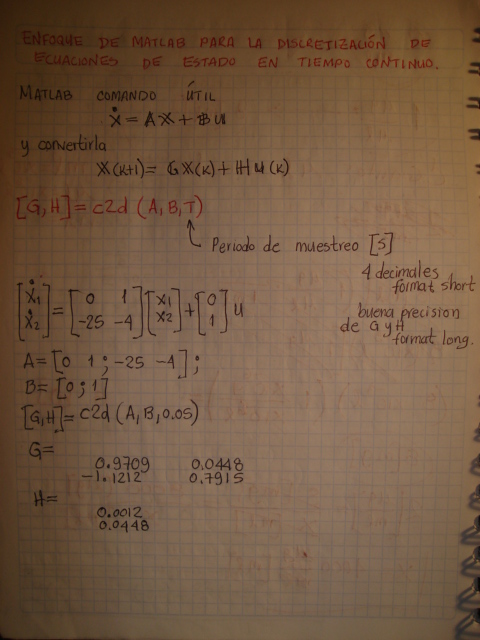 ENFOQUE DE MATLAB PARA LA DISCRETIZACIÓN DE
ECUACIONES DE ESTADO EN TIEMPO CONTINUO.
MATLAB COMANDO ÚTIL
ẋ = Ax + Bu
y convertirla
x(k+1) = Gx(k) + Hu(k)
[G,H] = c2d (A, B, T)
Periodo de muestreo [s]
4 decimales
format short
buena precision
de G y H
format long.
[ẋ1 ẋ2] = [0 1 -25 -4] [x1 x2] + [0 1] u
A = [0 1 ; -25 -4] ;
B = [0 ; 1]
[G,H] = c2d (A, B, 0.05)
G=
0.9709 0.0448
-1.1212 0.7915
H=
0.0012
0.0448